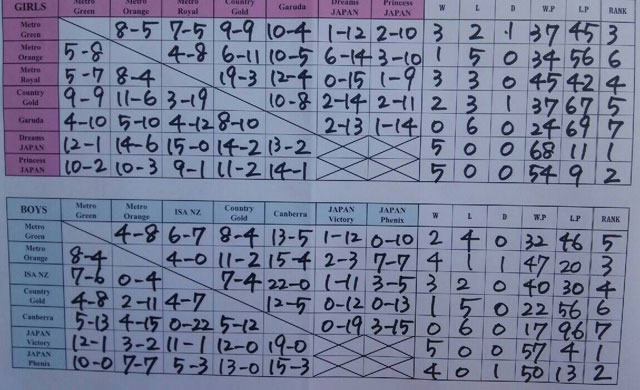 GIRLS Metro Green Metro Orange Metro Royal Country Gold Garuda Dreams JAPAN Princess JAPAN W L D W.P L.P RANK
Metro Green 8-5 7-5 9-9 10-4 1-12 2-10 3 2 1 37 45 3
Metro Orange 5-8 4-8 6-11 10-5 6-14 3-10 1 5 0 34 56 6
Metro Royal 5-7 8-4 19-3 12-4 0-15 1-9 3 3 0 45 42 4
Country Gold 9-9 11-6 3-19 10-8 2-14 2-11 2 3 1 37 67 5
Garuda 4-10 5-10 4-12 8-10 2-13 1-14 0 6 0 24 69 7
Dreams JAPAN 12-1 14-6 15-0 14-2 13-2 5 0 0 68 11 1
Princess JAPAN 10-2 10-3 9-1 11-2 14-1 5 0 0 54 9 2
BOYS Metro Green Metro Orange ISA NZ Country Gold Canberra JAPAN Victory JAPAN Phenix W L D W.P L.P RANK
Metro Green 4-8 6-7 8-4 13-5 1-12 0-10 2 4 0 32 46 5
Metro Orange 8-4 4-0 11-2 15-4 2-3 7-7 4 1 1 47 20 3
ISA NZ 7-6 0-4 7-4 22-0 1-11 3-5 3 2 0 40 30 4
Country Gold 4-8 2-11 4-7 12-5 0-12 0-13 1 5 0 22 56 6
Canberra 5-13 4-15 0-22 5-12 0-19 3-15 0 6 0 17 96 7
JAPAN Victory 12-1 3-2 11-1 12-0 19-0 5 0 0 57 4 1
JAPAN Phenix 10-0 7-7 5-3 13-0 15-3 4 0 1 50 13 2